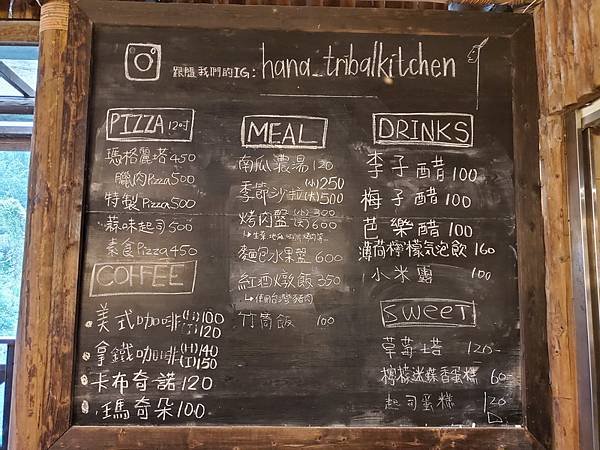 跟隨我們的IG: hana_tribalkitchen
PIZZA 12吋
瑪格麗塔 450
臘肉Pizza 500
特製Pizza 500
蒜味起司 500
素食Pizza 450
COFFEE
美式咖啡 (H)100
(I)120
拿鐵咖啡 (H)140
(I)150
卡布奇諾 120
瑪奇朵 100
MEAL
南瓜濃湯 120
季節沙拉 (小)250
(大)500
烤肉盤 (小)300
(大)600
麵包水果盤 600
紅酒燉飯 350
↳使用台灣豬肉
竹筒飯 100
DRINKS
李子醋 100
梅子醋 100
芭樂醋 100
薄荷檸檬氣泡飲 160
小米露 100
SWEET
草莓塔 120-
檸檬迷迭香蛋糕 60-
起司蛋糕 120